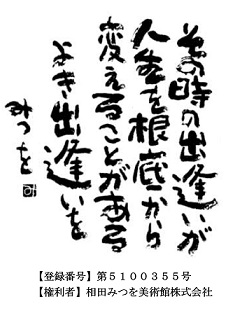 その時の出逢いが
人生を根底から
変えることがある
よき出逢いを
みつを
【登録番号】第５１００３５５号
【権利者】相田みつを美術館株式会社